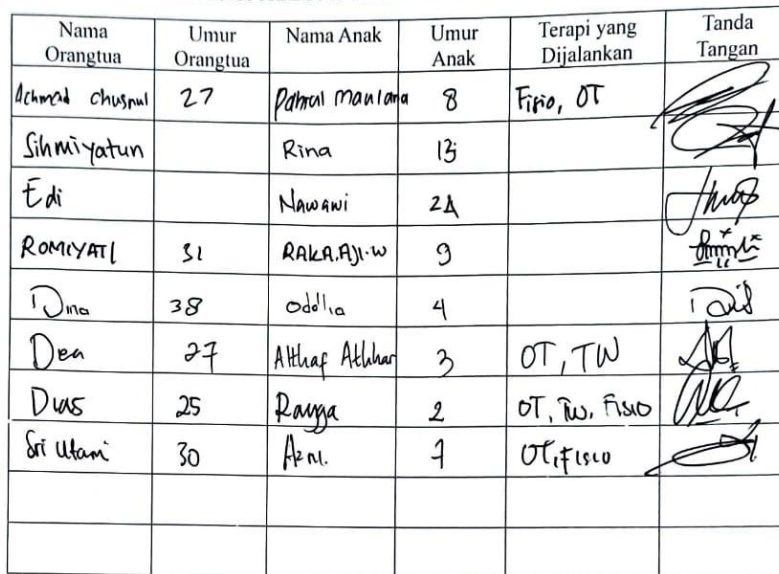 Nama Orangtua Umur Orangtua Nama Anak Umur Anak Terapi yang Dijalankan Tanda Tangan
Achmad Chusnul 27 Pahrul Maulana 8 Fisio, OT
Sihmiyatun Rina 13
Edi Nawawi 24
ROMIYATI 31 RAKA.AJI.W 9
Dina 38 Odellia 4
Dea 27 Althaf Athhar 3 OT, TW
Dias 25 Rayga 2 OT, Tw, Fisio
Sri Utami 30 Azni. 7 OT, Fisio